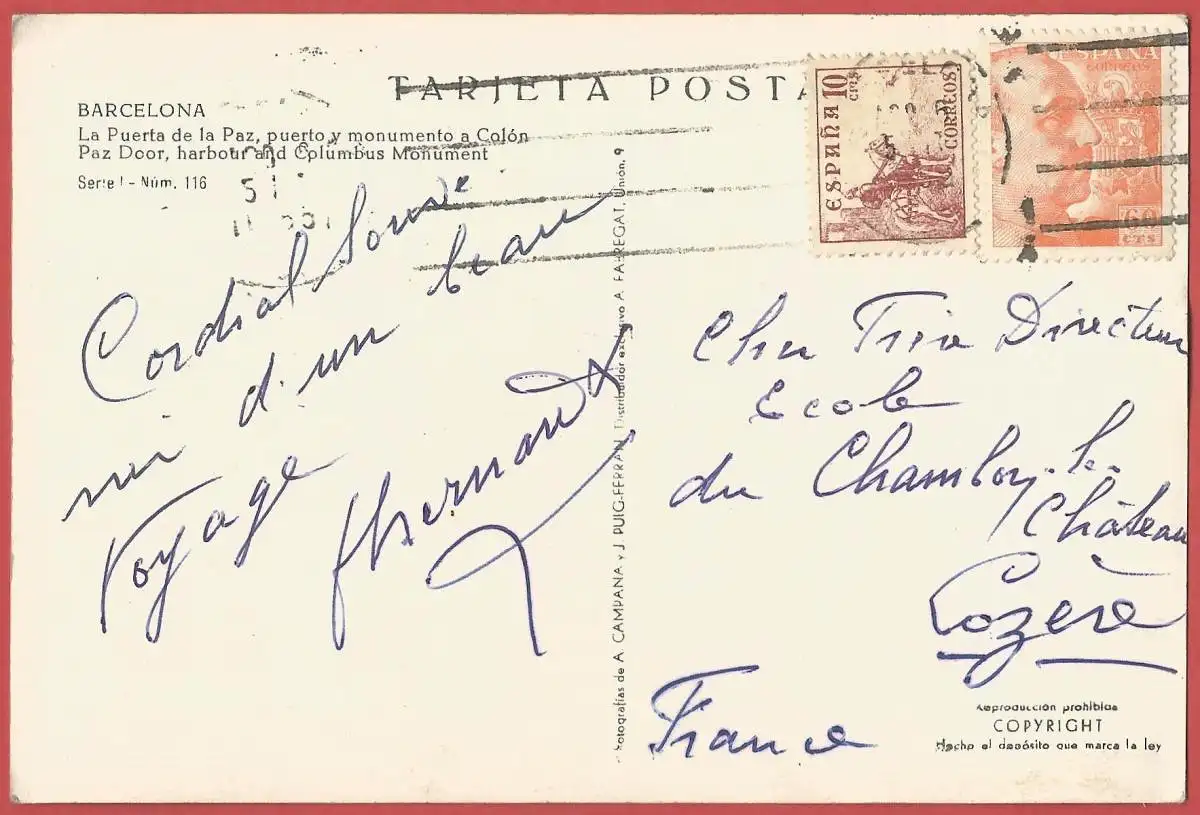 TARJETA POSTA
BARCELONA
La Puerta de la Paz, puerto y monumento a Colón
Paz Door, harbour and Columbus Monument
Serie I - Núm. 116
Cordial Souve
nir d'un beau
Voyage
Fotografías de A. CAMPANA y J. PUIG-FERRAN. Distribuidor exclusivo A. FABREGAT. Unión, 9
ESPAÑA 10 cts
CORREOS
ESPAÑA
CORREOS
60
CTS
Directeur
Ecole
du Chambon-le-
Château
Lozère
France
Reproducción prohibida
COPYRIGHT
Hecho el depósito que marca la ley